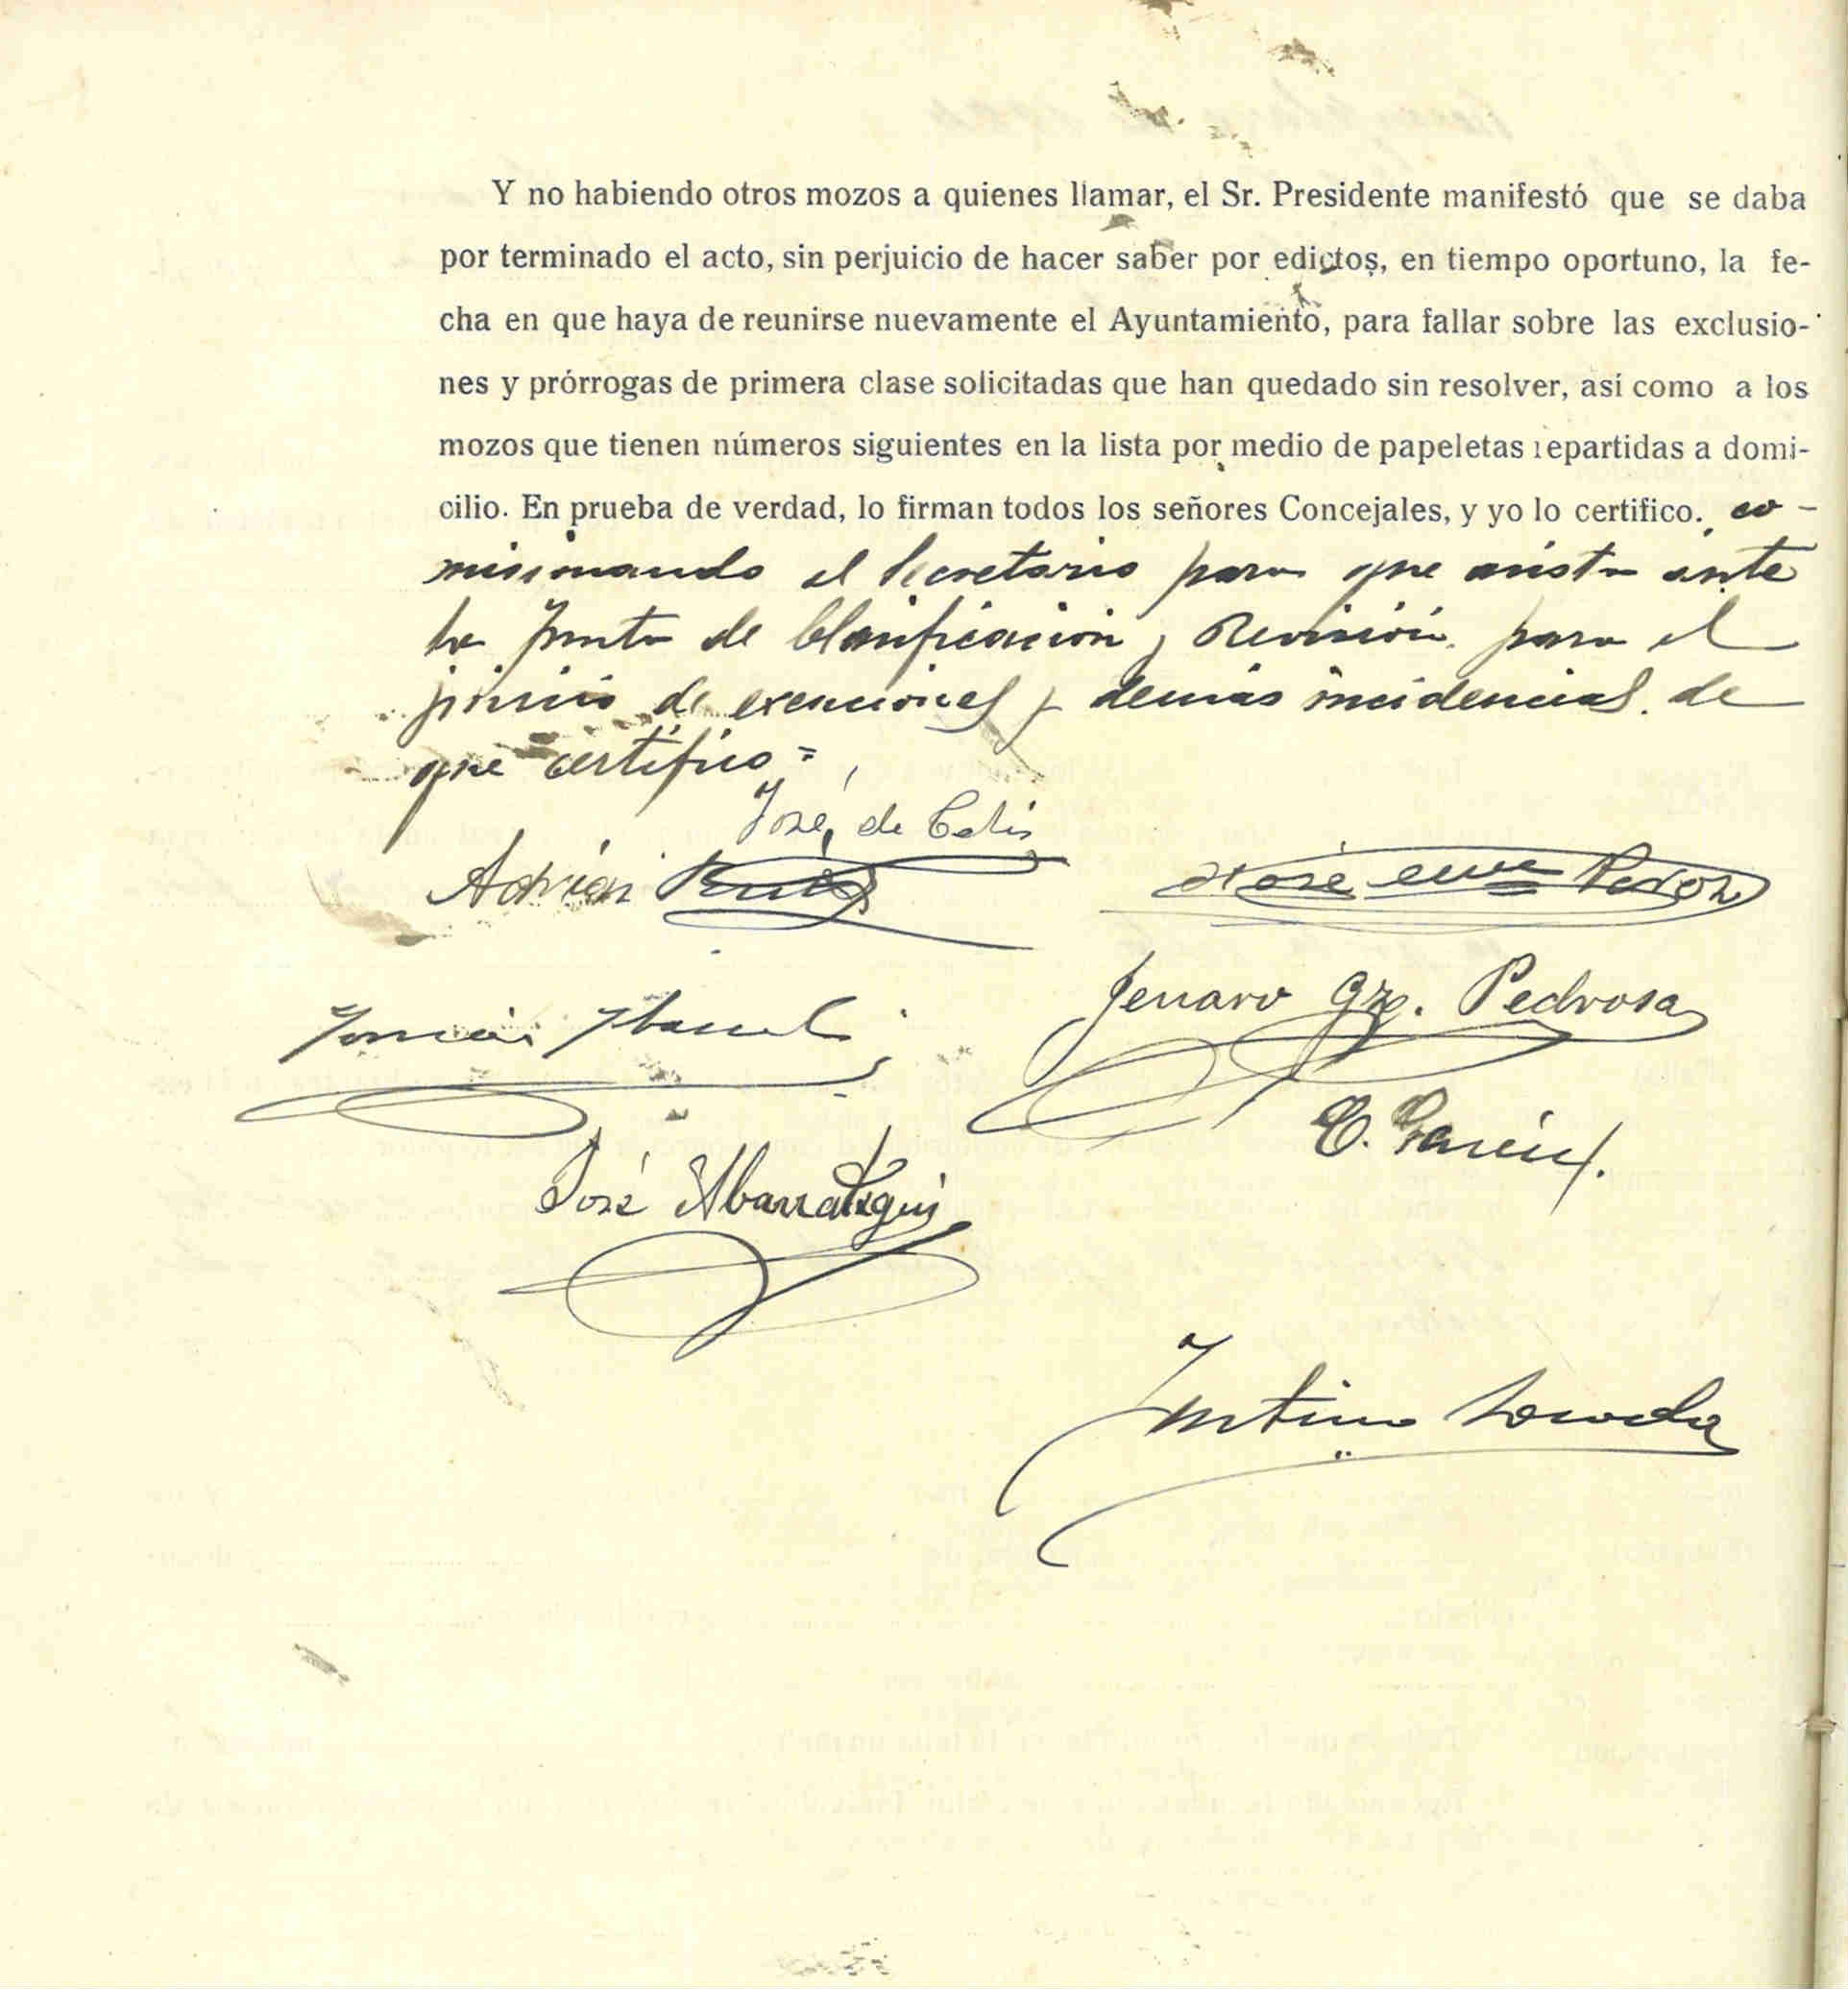 Y no habiendo otros mozos a quienes llamar, el Sr. Presidente manifestó que se daba
por terminado el acto, sin perjuicio de hacer saber por edictos, en tiempo oportuno, la fe-
cha en que haya de reunirse nuevamente el Ayuntamiento, para fallar sobre las exclusio-
nes y prórrogas de primera clase solicitadas que han quedado sin resolver, así como a los
mozos que tienen números siguientes en la lista por medio de papeletas repartidas a domi-
cilio. En prueba de verdad, lo firman todos los señores Concejales, y yo lo certifico. co-
misionando al Secretario para que asista ante
la Junta de Clasificación y Revisión para el
juicio de exenciones y demás incidencias. de
que certifico =
José de Celis
Adrián Ruiz
José
Jenaro Gz. Pedrosa
C. García
José Abarrategui